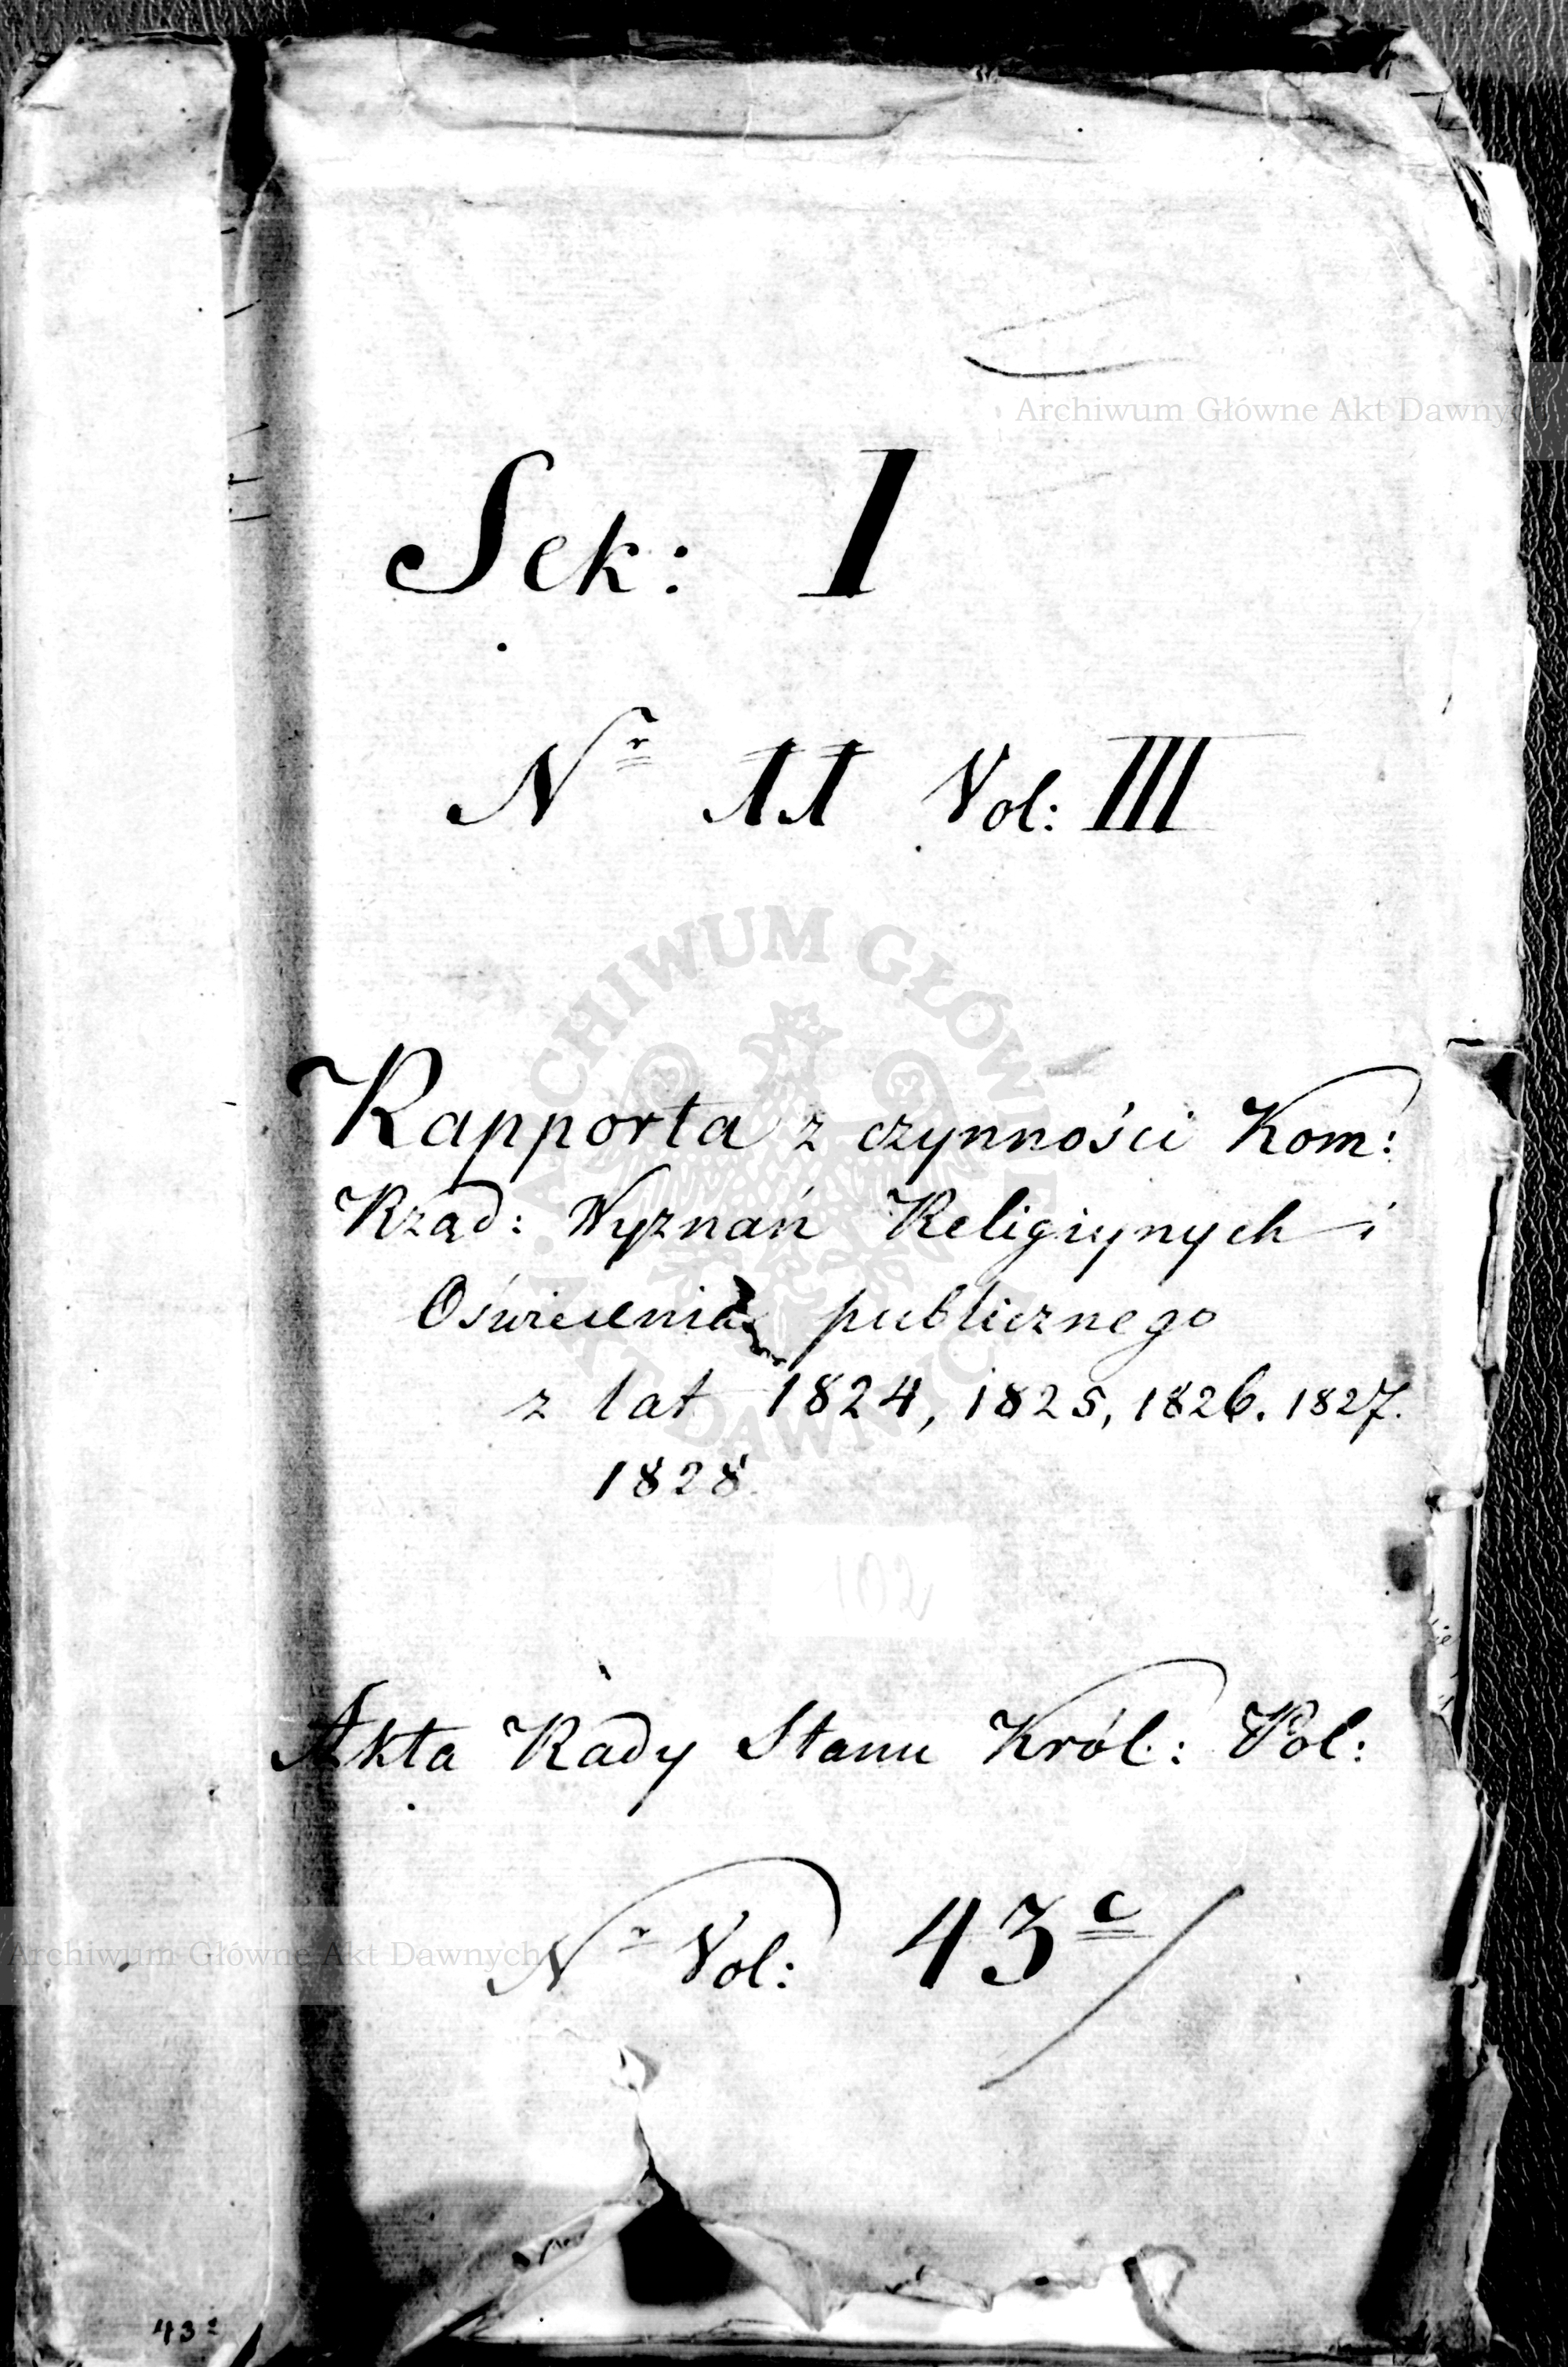 Archiwum Główne Akt Dawnych
Sek: I
Nr 11 Vol: III
ARCHIWUM GŁÓWNE AKT DAWNYCH
Rapporta z czynności Kom:
Rząd: Wyznań Religiynych i
Oświecenia publicznego
z lat 1824, 1825, 1826. 1827.
1828.
102
Akta Rady Stanu Król: Pol:
Nr Vol: 43c/
Archiwum Główne Akt Dawnych
43c